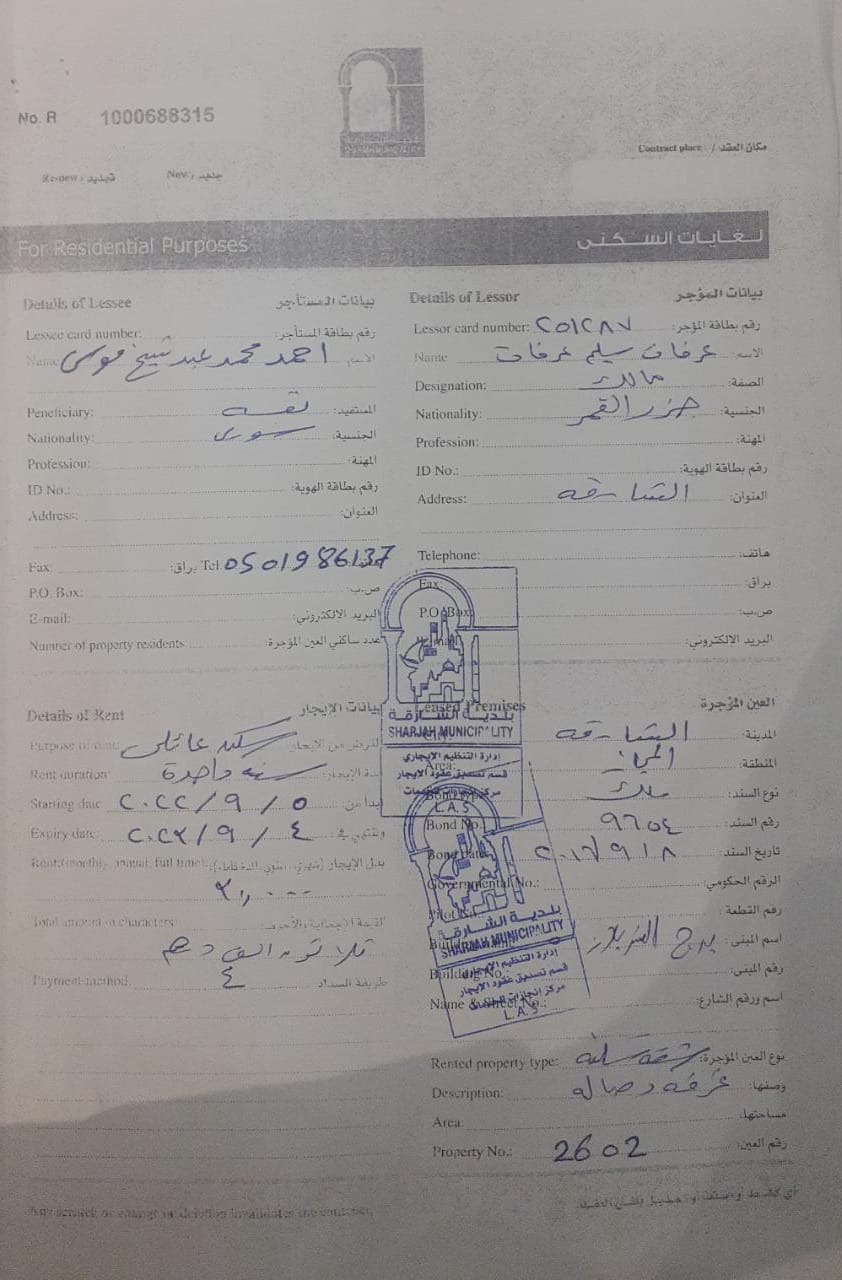 No. R 1000688315
Contract place / مكان العقد
Renew / تجديد New / جديد
For Residential Purposes لغايات السكنى
Details of Lessee بيانات المستأجر
Lessee card number: رقم بطاقة المستأجر:
Name احمد محمد عبد شيخ موسى الاسم
Peneficiary: نفسه المستفيد:
Nationality: سوري الجنسية:
Profession: المهنة:
ID No.: رقم بطاقة الهوية:
Address: العنوان:
Fax: براق: Tel. 0501986137
P.O. Box: ص.ب:
E-mail: البريد الإلكتروني:
Number of property residents عدد ساكني العين المؤجرة:
Details of Lessor بيانات المؤجر
Lessor card number: رقم بطاقة المؤجر: ٢٥١٢٨٧
Name عرفات سليم عرفات الاسم
Designation: مالك الصفة:
Nationality: جزر القمر الجنسية:
Profession: المهنة:
ID No.: رقم بطاقة الهوية:
Address: الشارقه العنوان:
Telephone: هاتف:
Fax: براق:
P.O. Box ص.ب:
البريد الإلكتروني:
Details of Rent بيانات الإيجار
Purpose of rent: سكن عائلي الغرض من الايجار
Rent duration: سنه واحدة مدة الإيجار:
Starting date ٢٠٢٢/٩/٥ يبدأ من:
Expiry date: ٤/٩/ وينتهي في:
Rent:(monthly, annual, full time): بدل الإيجار
Total amount in characters:
ثلاثون الف درهم
Payment method: ٤ طريقة السداد
Leased Premises العين المؤجرة
الشارقه المدينة:
Area: المنطقة:
ملك نوع السند:
Bond No. ٩٦٥٤ رقم السند:
Bond Date تاريخ السند:
Governmental No.: الرقم الحكومي:
رقم القطعة :
برج اسم المبنى:
Building No. رقم المبنى:
Name & Street No.: اسم ورقم الشارع:
Rented property type: شقة سكنيه نوع العين المؤجرة:
Description: غرفه وصاله وصفها:
Area: مساحتها:
Property No.: 2602 رقم العين:
بلدية الشارقة
SHARJAH MUNICIPALITY
إدارة التنظيم الإيجاري
قسم تصديق عقود الايجار
L.A.S
بلدية الشارقة
SHARJAH MUNICIPALITY
إدارة التنظيم الإيجاري
قسم تصديق عقود الايجار
L.A.S
Any scratch or change or deletion invalidates the contract.